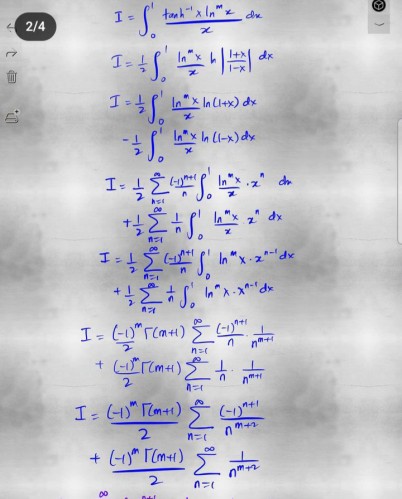 2/4
I = ∫₀¹ tanh⁻¹x lnᵐx / x dx
I = 1/2 ∫₀¹ lnᵐx / x ln |1+x / 1-x| dx
I = 1/2 ∫₀¹ lnᵐx / x ln(1+x) dx
- 1/2 ∫₀¹ lnᵐx / x ln(1-x) dx
I = 1/2 ∑ₙ₌₁^∞ (-1)ⁿ⁺¹ / n ∫₀¹ lnᵐx / x · xⁿ dx
+ 1/2 ∑ₙ₌₁^∞ 1/n ∫₀¹ lnᵐx / x xⁿ dx
I = 1/2 ∑ₙ₌₁^∞ (-1)ⁿ⁺¹ / n ∫₀¹ lnᵐx · xⁿ⁻¹ dx
+ 1/2 ∑ₙ₌₁^∞ 1/n ∫₀¹ lnᵐx · xⁿ⁻¹ dx
I = (-1)ᵐ / 2 Γ(m+1) ∑ₙ₌₁^∞ (-1)ⁿ⁺¹ / n · 1 / nᵐ⁺¹
+ (-1)ᵐ / 2 Γ(m+1) ∑ₙ₌₁^∞ 1/n · 1 / nᵐ⁺¹
I = (-1)ᵐ Γ(m+1) / 2 ∑ₙ₌₁^∞ (-1)ⁿ⁺¹ / nᵐ⁺²
+ (-1)ᵐ Γ(m+1) / 2 ∑ₙ₌₁^∞ 1 / nᵐ⁺²